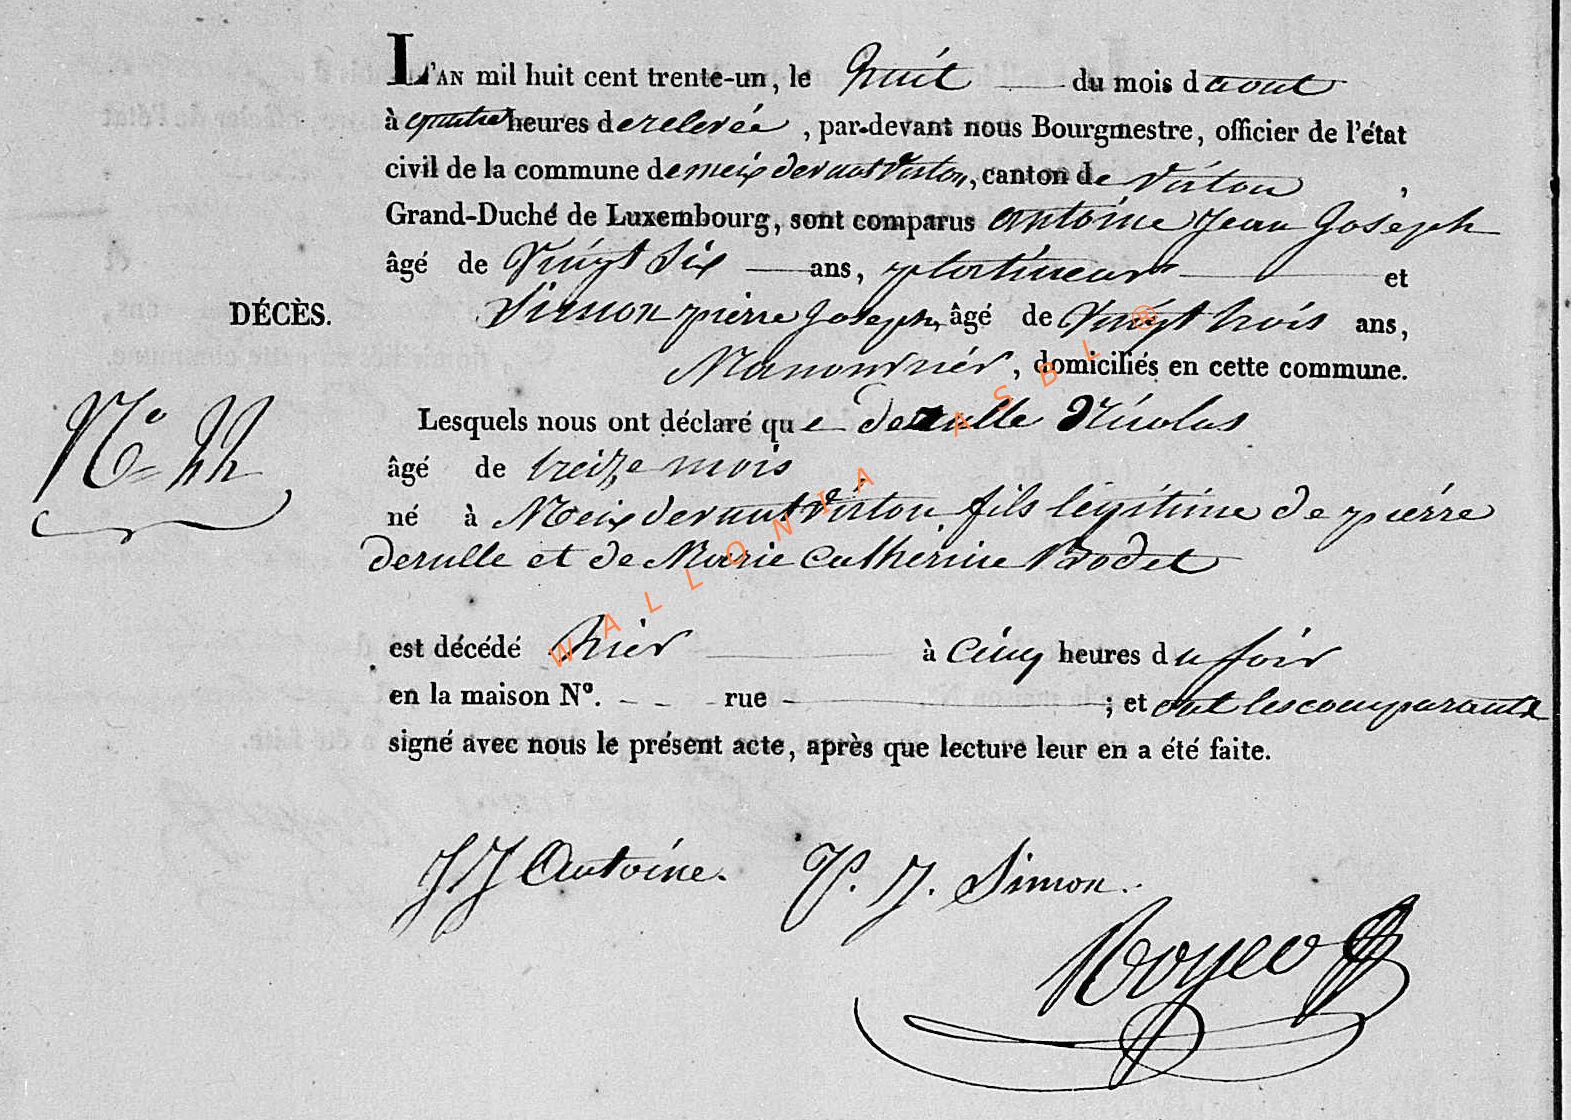 L'AN mil huit cent trente-un, le huit du mois d'aout
à quatre heures de relevée, par-devant nous Bourgmestre, officier de l'état
civil de la commune de meix devant Virton, canton de Virton,
Grand-Duché de Luxembourg, sont comparus antoine jean joseph
âgé de Vingt Six ans, et
DÉCÈS.
Simon pierre joseph, âgé de Vingt trois ans,
Manouvrier, domiciliés en cette commune.
N° 22
Lesquels nous ont déclaré que derulle Nicolas
âgé de treize mois
né à Meix devant Virton fils légitime de pierre
derulle et de Marie Catherine Rodet
est décédé hier à Cinq heures du soir
en la maison N°. - - - rue - ; et ont les comparants
signé avec nous le présent acte, après que lecture leur en a été faite.
JJ Antoine. P. J. Simon.
WALLONIA ASBL ®